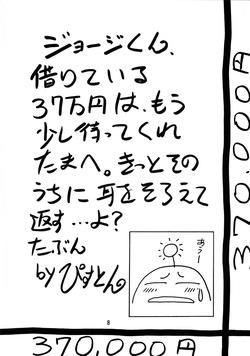 ジョージくん、
借りている
37万円は、もう
少し待ってくれ
たまへ。きっとその
うちに耳をそろえて
返す…よ?
たぶん
by ぴすとん
あぅー
8
370,000円
370,000円